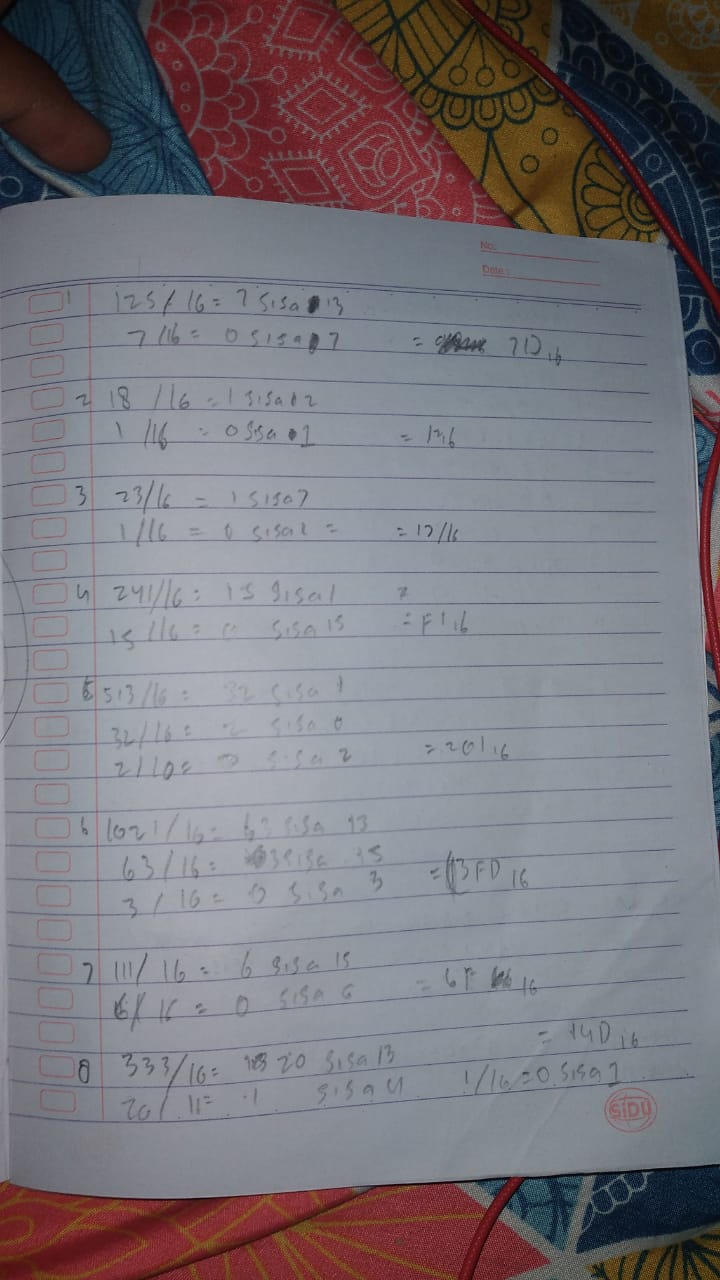 No:
Date:
1 125/16 = 7 sisa 13
7/16 = 0 sisa 7 = 7D16
2 18/16 = 1 sisa 2
1/16 = 0 sisa 1 = 1216
3 23/16 = 1 sisa 7
1/16 = 0 sisa 1 = = 17/16
4 241/16 = 15 sisa 1
15/16 = 0 sisa 15 = F116
5 513/16 = 32 sisa 1
32/16 = 2 sisa 0
2/10 = 0 sisa 2 = 20116
6 1021/16 = 63 sisa 13
63/16 = 3 sisa 15
3/16 = 0 sisa 3 = 3FD16
7 111/16 = 6 sisa 15
6/16 = 0 sisa 6 = 6F16
= 14D16
8 333/16 = 20 sisa 13
20/11 = 1 sisa 4 1/16 = 0 sisa 1
SIDU